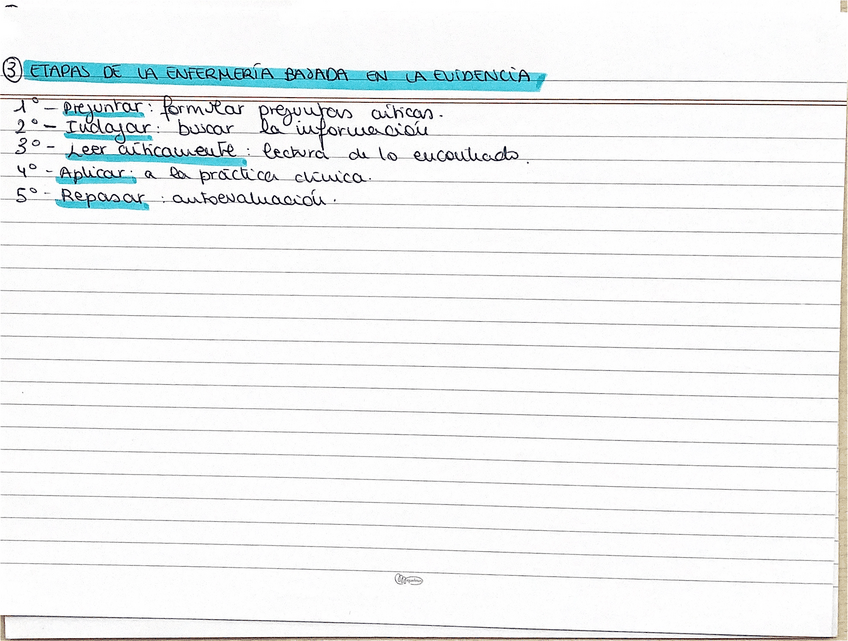 ③ ETAPAS DE LA ENFERMERÍA BASADA EN LA EVIDENCIA
1º - Preguntar: formular preguntas críticas.
2º - Indagar: buscar la información
3º - Leer críticamente: lectura de lo encontrado.
4º - Aplicar: a la práctica clínica.
5º - Repasar: autoevaluación.